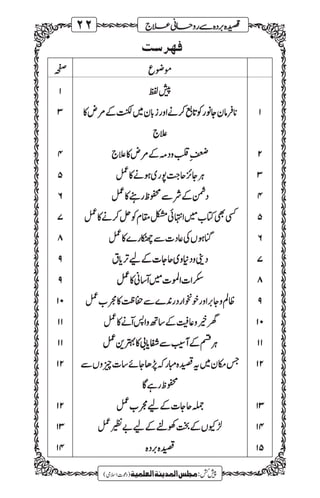 قصیدہ بردہ سے روحانی علاج ۲۲
فہرست
موضوع صفحہ
پیش لفظ ۱
۱ نافرمان جانور کو تابع کرنے اور زبان میں لکنت کے مرض کا علاج ۳
۲ ضعفِ قلب ودمہ کے مرض کا علاج ۴
۳ ہر جائز حاجت پوری ہونے کا عمل ۵
۴ دشمن کے شر سے محفوظ رہنے کا عمل ۶
۵ کسی بھی کتاب میں انتہائی مشکل مقام کو حل کرنے کا عمل ۷
۶ گناہوں کی عادت سے چھٹکارے کا عمل ۸
۷ دینی ودنیاوی حاجات کے لیے تریاق ۹
۸ سکرات الموت میں آسانی کا عمل ۹
۹ ظالم وجابر اور خونخوار درندے سے حفاظت کا مجرب عمل ۱۰
۱۰ گھر خیر وعافیت کے ساتھ واپس آنے کا عمل ۱۱
۱۱ ہر قسم کے آسیب سے شفایابی کا بہترین عمل ۱۱
۱۲ جس مکان میں یہ قصیدہ مبارکہ پڑھا جائے سات چیزوں سے ۱۲
محفوظ رہے گا
۱۳ جملہ حاجات کے لیے مجرب عمل ۱۲
۱۴ لڑکیوں کے بخت کھولنے کے لیے بے نظیر عمل ۱۳
۱۵ قصیدہ بردہ ۱۴
پیش کش: مجلس المدینۃ العلمیۃ (دعوت اسلامی)